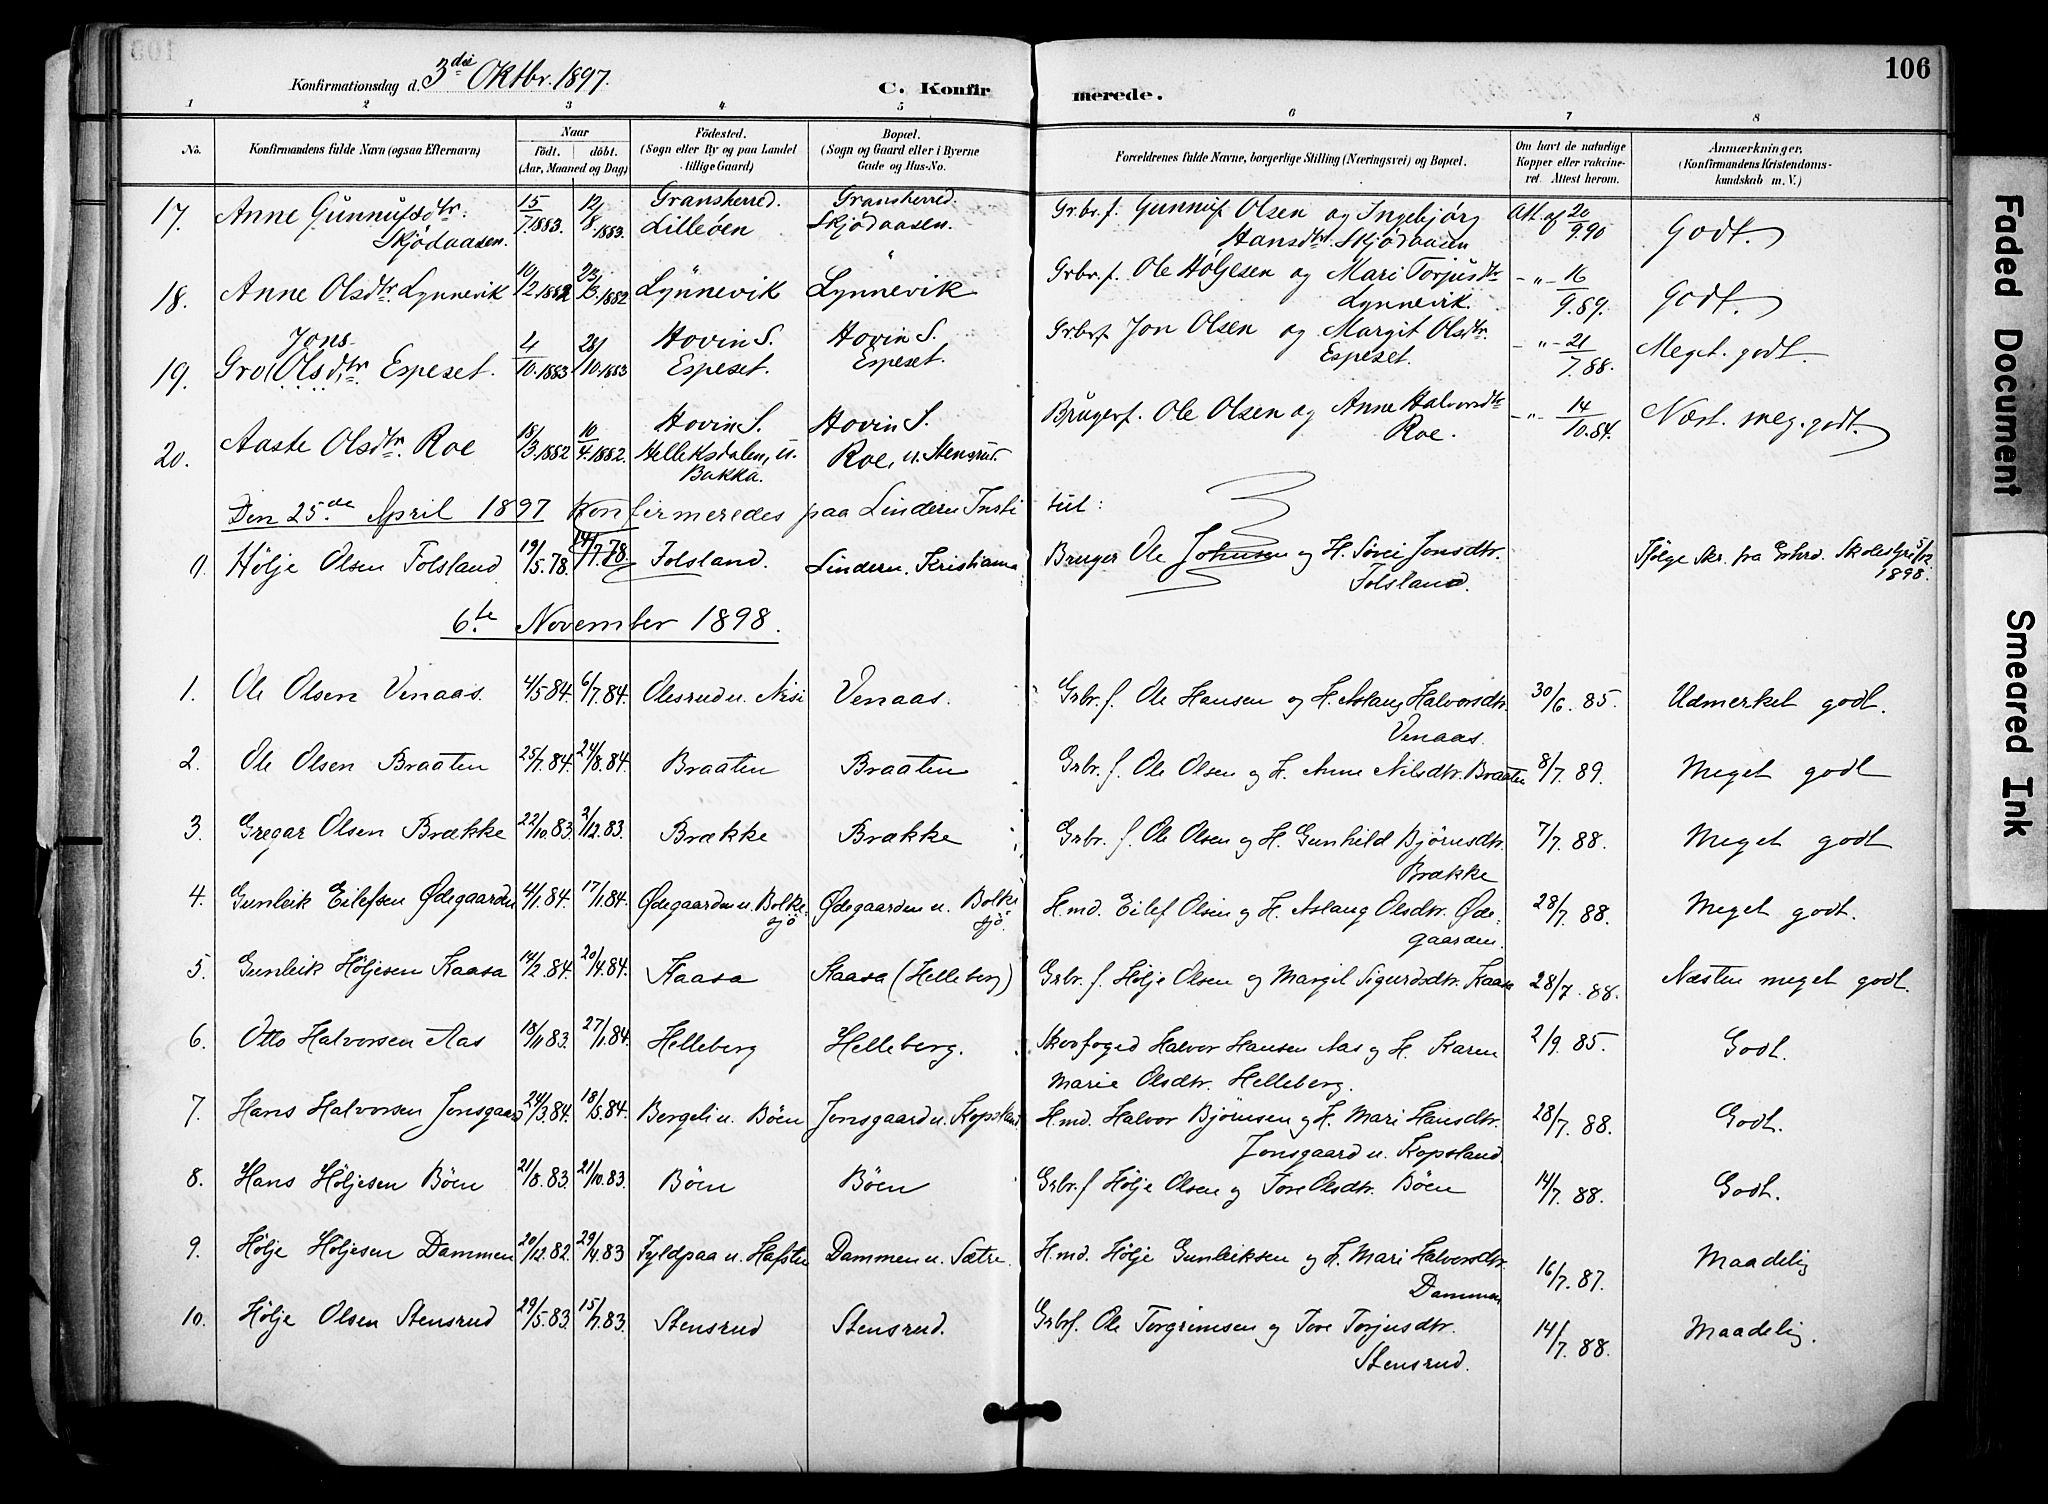 106
Konfirmationsdag d. 3die Oktbr. 1897.
C. Konfirmerede.
1 2 3 4 5 6 7 8
No.
Konfirmandens fulde Navn (ogsaa Efternavn)
Naar
födt. döbt.
(Aar, Maaned og Dag)
Födested.
(Sogn eller By og paa Landet
tillige Gaard)
Bopæl.
(Sogn og Gaard eller i Byerne
Gade og Hus-No.
Forældrenes fulde Navne, borgerlige Stilling (Næringsvei) og Bopæl.
Om havt de naturlige
Kopper eller vakcine-
ret. Attest herom.
Anmærkninger,
(Konfirmandens Kristendoms-
kundskab m. V.)
17. Anne Gunnufsdtr. Skjödaasen. 15/7.1883. 12/8.1883. Gransherred. Lilleöen Gransherred. Skjödaasen. Grbr. f. Gunnuf Olsen og Ingebjørg Hansdtr. Skjødaasen Att. af 20/9.90 Godt.
18. Anne Olsdtr. Lynnevik 10/12.1882 Lynnevik Lynnevik Grbr. f. Ole Høljesen og Mari Torjusdtr. Lynnevik. -"- 16/9.89. Godt.
19. Gro Jons- Olsdtr. Espeset. 4/10.1883 28/10.1883 Hovin S. Espeset. Hovin S. Espeset. Grbr. f. Jon Olsen og Margit Olsdtr. Espeset. -"- 21/7.88. Meget godt.
20. Aaste Olsdtr. Roe 18/3.1882 10/4.1882. Hovin S. Helleksdalen, u. Bakka. Hovin S. Roe, u. Stensrud. Brugerf. Ole Olsen og Anne Halvorsdtr. Roe. -"- 14/10.84. Næst. meg. godt.
Den 25de April 1897 konfirmeredes paa Lindern Institut:
1. Hölje Olsen Folsland 19/5.78. 14/7.78. Folsland. Lindern. Kristiania Bruger Ole Johnsen og H. Sövei Jonsdtr. Folsland. Ifölge Skr. fra Grhrd. Skolestyr 5/12 1898.
6te November 1898.
1. Ole Olsen Venaas. 4/5 84. 6/7. 84. Olesrud u. Nisi Venaas. Grbr. f. Ole Hansen og H. Aslaug Halvorsdtr. Venaas. 30/6. 85. Udmerket godt.
2. Ole Olsen Braaten 25/7. 84. 24/8. 84. Braaten Braaten Grbr. f. Ole Olsen og H. Anne Nilsdtr. Braaten 8/7. 89. Meget godt
3. Gregar Olsen Brække 22/10 83. 2/12. 83. Brække Brække Grbr. f. Ole Olsen og H. Gunhild Björnsdtr. Brække 7/7. 88. Meget godt
4. Gunleik Eilefsen Ødegaarden 4/1. 84. 17/1. 84. Ødegaarden u. Bolkesjö Ødegaarden u. Bolkesjö. H.md. Eilef Olsen og H. Aslaug Olsdtr. Ødegaarden. 28/7. 88. Meget godt.
5. Gunleik Höljesen Kaasa 14/2. 84. 20/4. 84. Kaasa Kaasa (Helleberg) Grbr. f. Hölje Olsen og Margit Sigurdsdtr. Kaasa 28/7. 88. Næsten meget godt.
6. Otto Halvorsen Aas 18/11 83. 27/1. 84. Helleberg Helleberg. Skovfoged Halvor Hansen Aas og H. Karen Marie Olsdtr. Helleberg. 2/9. 85. Godt.
7. Hans Halvorsen Jonsgaard 24/3. 84. 18/5. 84. Bergeli u. Böen Jonsgaard u. Kopsland H.md. Halvor Björnsen og H. Mari Hansdtr. Jonsgaard u. Kopsland. 28/7. 88. Godt.
8. Hans Höljesen Böen 21/8. 83. 21/10. 83. Böen Böen Grbr. f Hölje Olsen og Tore Olsdtr. Böen 14/7. 88. Godt.
9. Hölje Höljesen Dammen 20/12. 82. 29/4. 83 Fyldpaa u. Hafsten Dammen u. Sætre. H.md. Hölje Gunleiksen og H. Mari Halvorsdtr. Dammen 16/7. 87. Maadelig
10. Hölje Olsen Stensrud 29/5. 83. 15/7. 83. Stensrud Stensrud. Grbr. f. Ole Torgrimsen og Tore Torjusdtr. Stensrud. 14/7. 88. Maadelig.
Faded Document
Smeared Ink